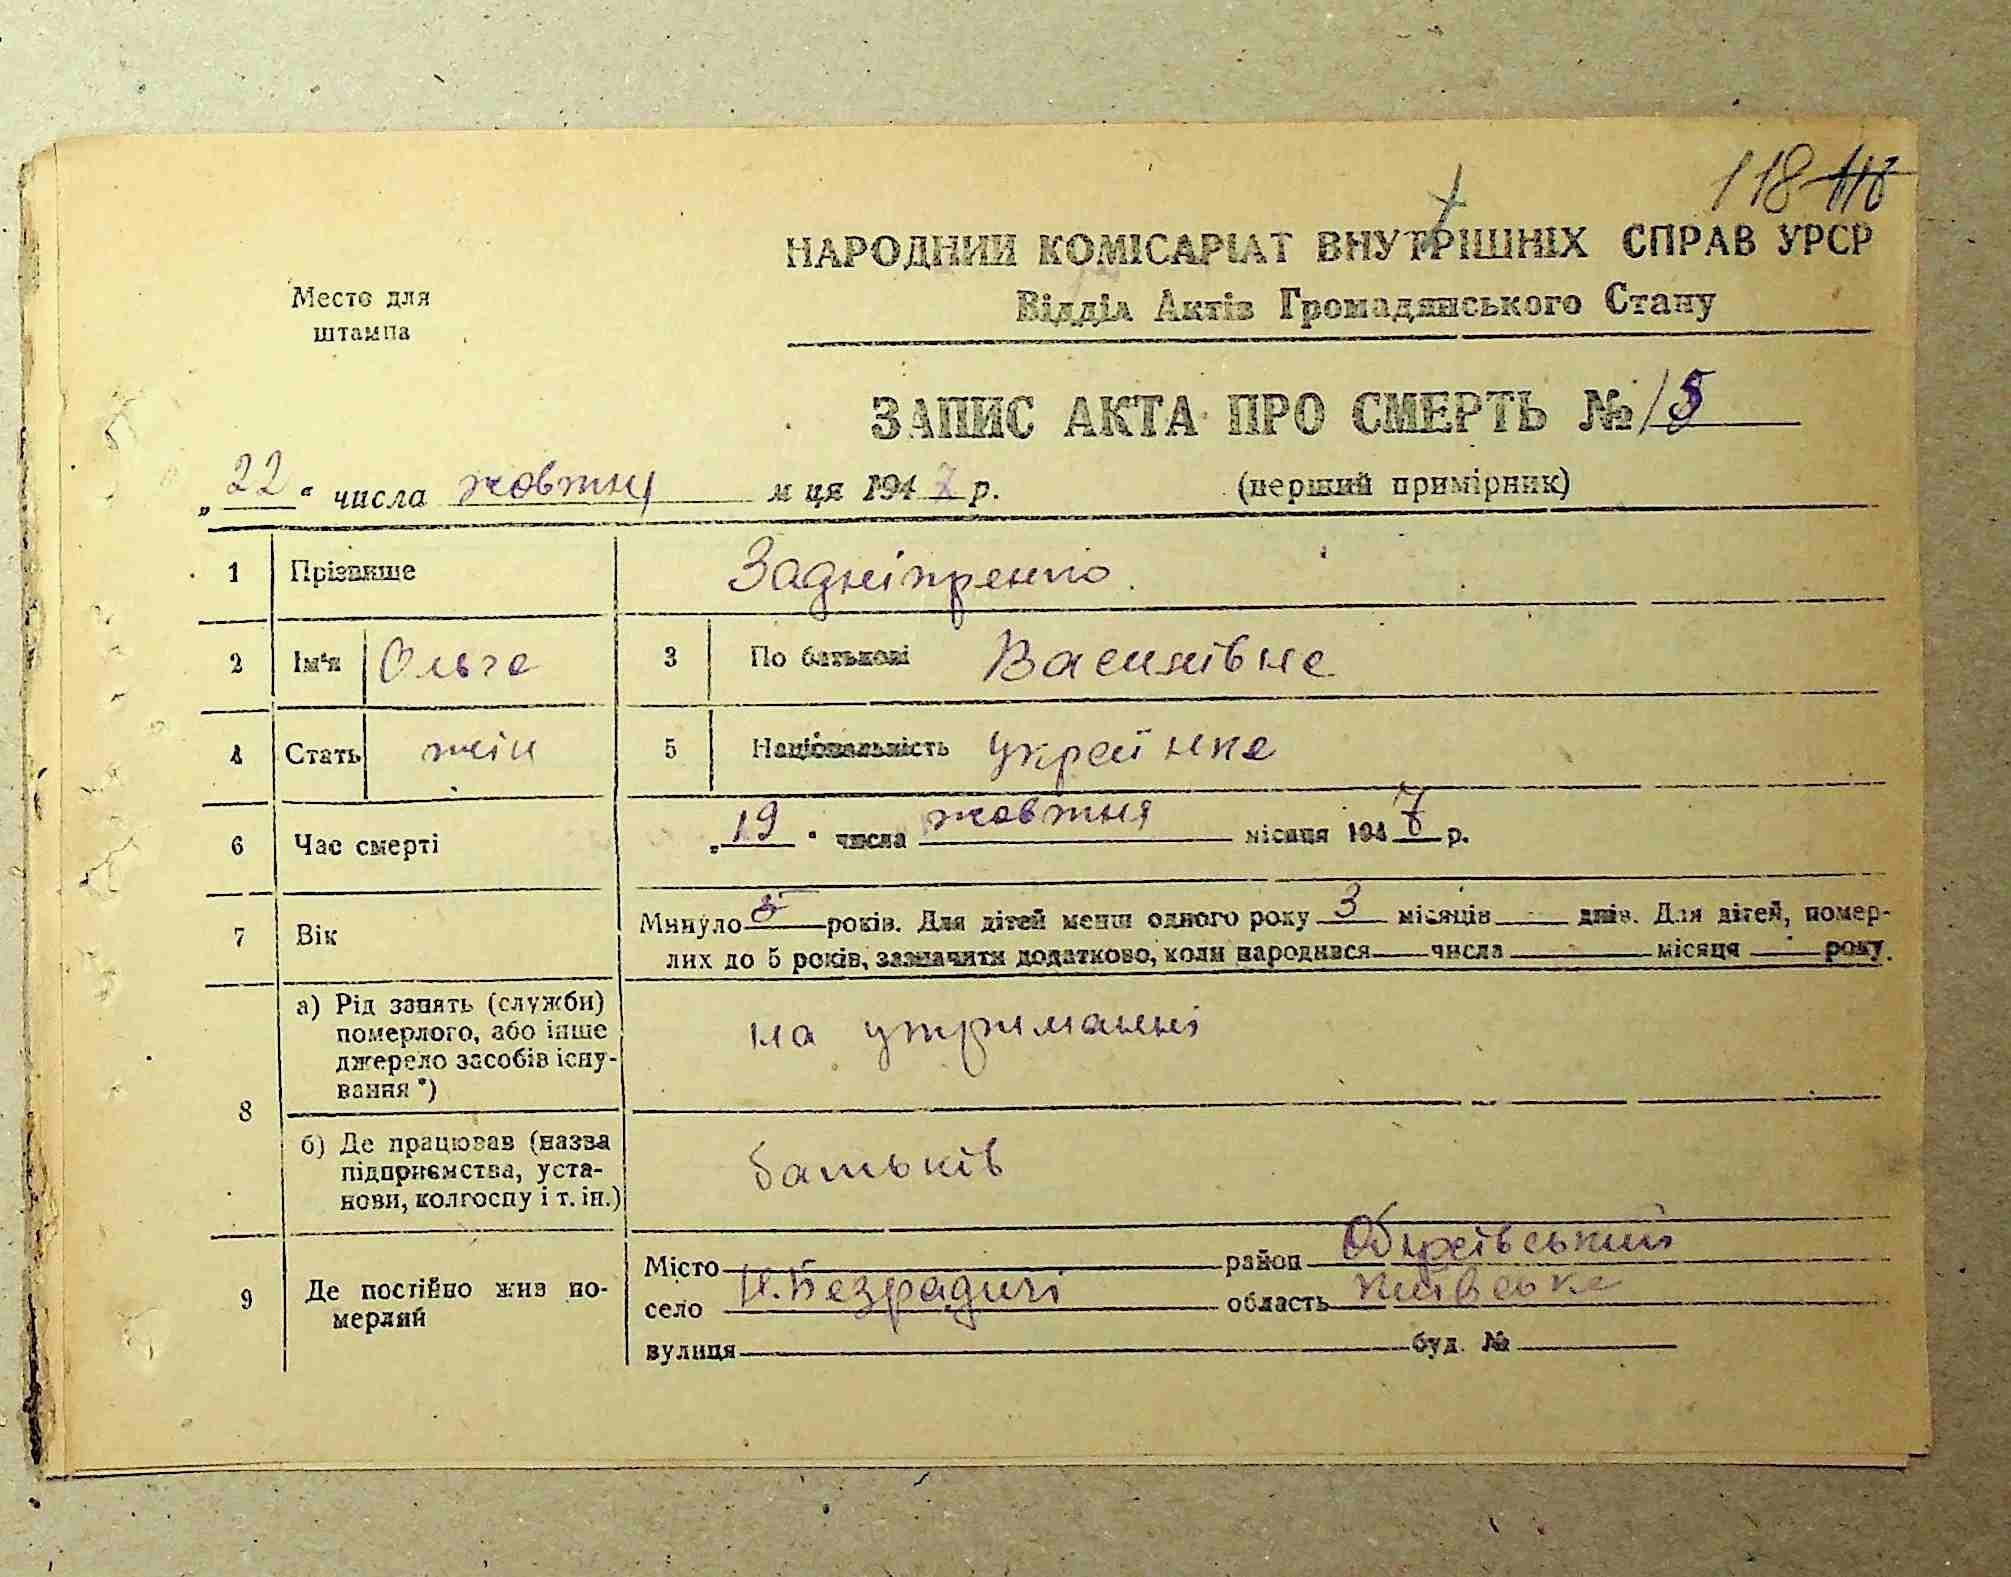 118 116
НАРОДНИЙ КОМІСАРІАТ ВНУТРІШНІХ СПРАВ УРСР
Відділ Актів Громадянського Стану
Место для
штампа
ЗАПИС АКТА ПРО СМЕРТЬ № 15
„22“ числа жовтня м-ця 1947 р. (перший примірник)
1 Прізвище Задніпренко
2 Ім'я Ольга 3 По батькові Василівна
4 Стать жін 5 Національність українка
6 Час смерті „19“ числа жовтня місяця 1947 р.
7 Вік Минуло 5 років. Для дітей менш одного року 3 місяців — днів. Для дітей, помер-
лих до 5 років, зазначити додатково, коли народився — числа — місяця — року.
8 а) Рід занять (служби)
померлого, або інше
джерело засобів існу-
вання *)
на утриманні
б) Де працював (назва
підприємства, уста-
нови, колгоспу і т. ін.)
батьків
9 Де постійно жив по-
мерлий
Місто район Обухівський
село Н. Безрадичі область Київська
вулиця буд. №